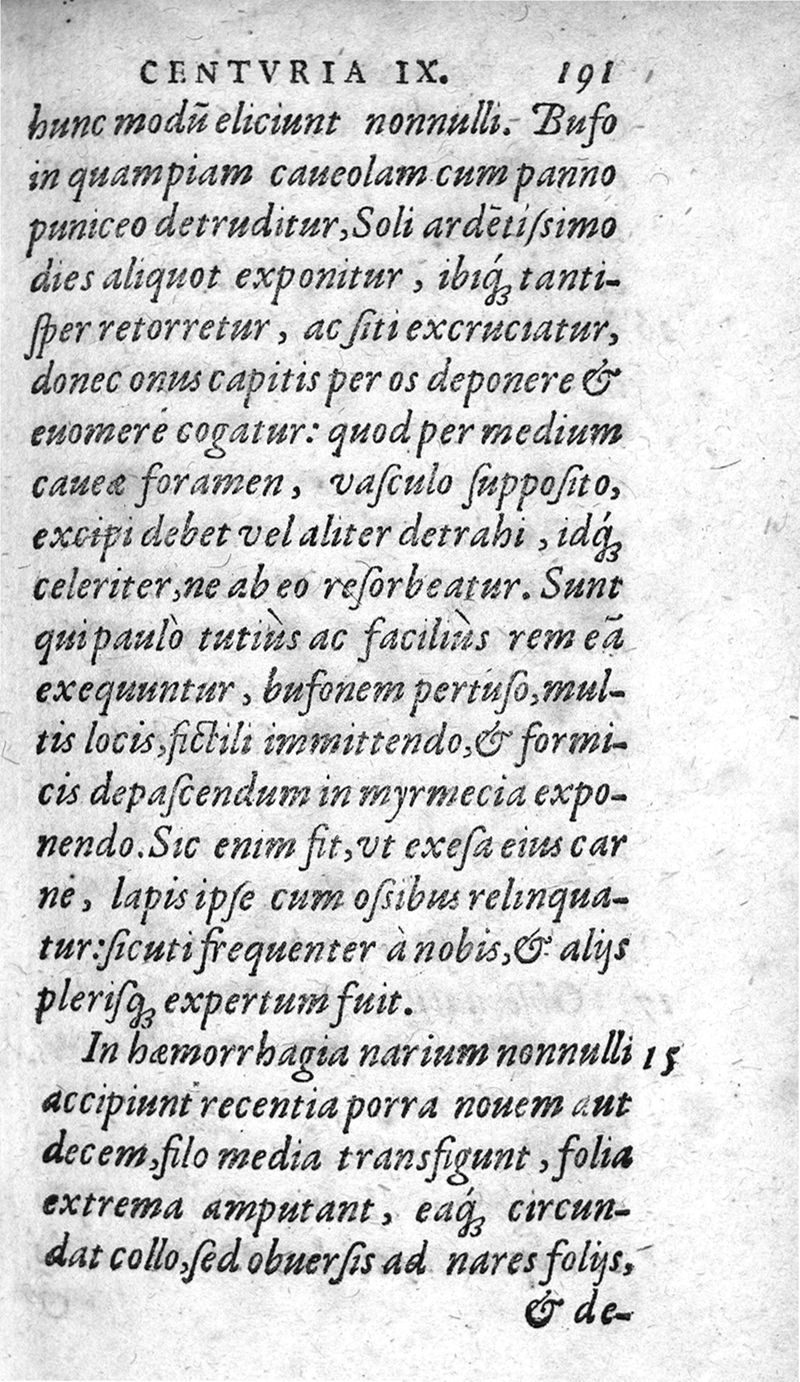 CENTVRIA IX. 191
hunc modū eliciunt nonnulli. Bufo
in quampiam caueolam cum panno
puniceo detruditur, Soli ardētiſsimo
dies aliquot exponitur, ibiq́ꝫ tanti-
ſper retorretur, ac ſiti excruciatur,
donec onus capitis per os deponere &
euomere cogatur: quod per medium
caueæ foramen, vaſculo ſuppoſito,
excipi debet vel aliter detrahi, idq́ꝫ
celeriter, ne ab eo reſorbeatur. Sunt
qui paulò tutiùs ac faciliùs rem eā
exequuntur, bufonem pertuſo, mul-
tis locis, fictili immittendo, & formi-
cis depaſcendum in myrmecia expo-
nendo. Sic enim fit, vt exeſa eius car
ne, lapis ipſe cum oſsibus relinqua-
tur: ſicuti frequenter à nobis, & alijs
pleriſqꝫ expertum fuit.
In hæmorrhagia narium nonnulli 15
accipiunt recentia porra nouem aut
decem, filo media transfigunt, folia
extrema amputant, eaq́ꝫ circun-
dat collo, ſed obuerſis ad nares folijs,
& de-